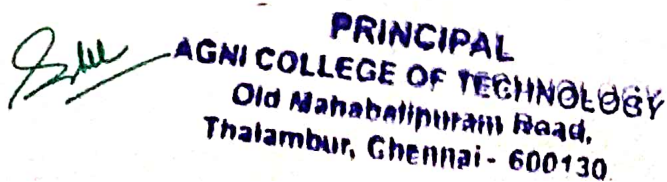 PRINCIPAL
AGNI COLLEGE OF TECHNOLOGY
Old Mahabalipuram Road,
Thalambur, Chennai - 600130